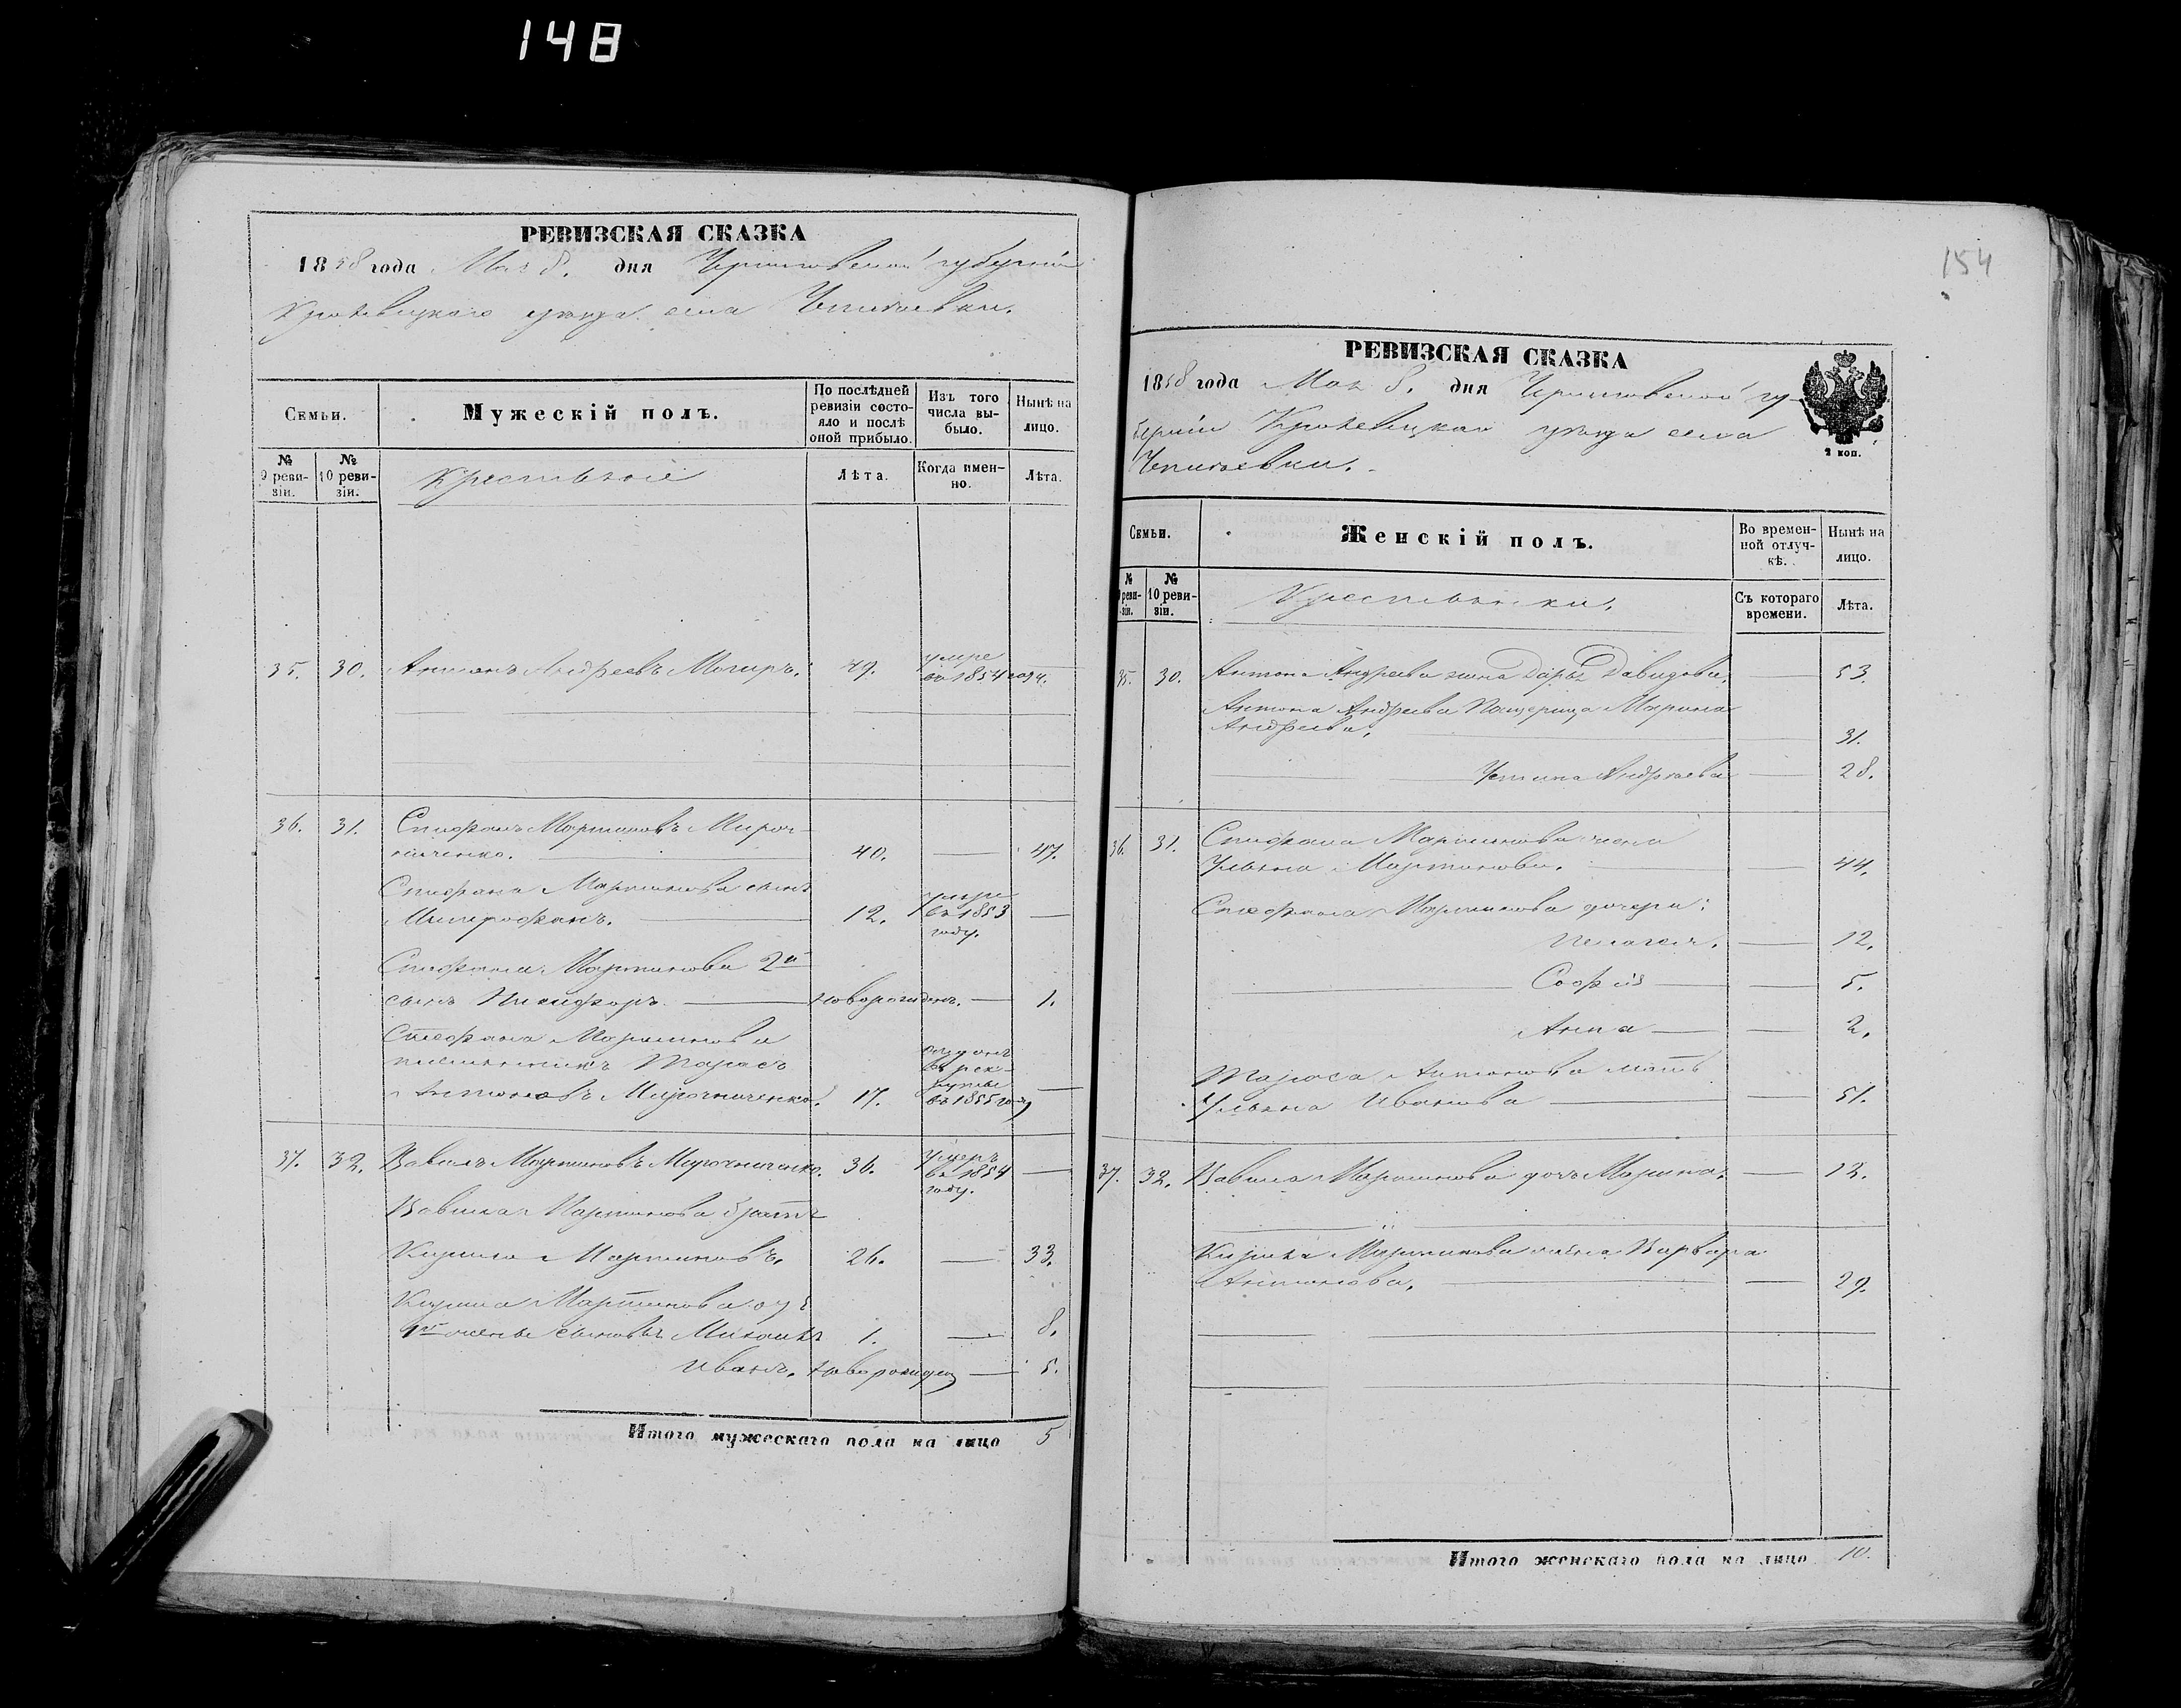 148
РЕВИЗСКАЯ СКАЗКА
1858 года Мая 8. дня Черниговской губернии
Кролевецкаго уезда села
Семьи.
Мужескій полъ.
По послѣдней ревизіи состояло и послѣ оной прибыло.
Изъ того числа выбыло.
Ныне на лицо.
№ 9 ревизіи.
№ 10 ревизіи.
Крестьяне
Лѣта.
Когда именно.
Лѣта.
35. 30. Антонъ Андреевъ 49. умре въ 1854 году.
36. 31. Стефанъ Мартиновъ Мирошниченко. 40. — 47.
Стефана Мартинова сынъ
Митрофанъ. — 12. умре въ 1853 году. —
Стефана Мартинова 2й
сынъ Никифоръ. — новорожден. — 1.
Стефана Мартинова
племянникъ Тарасъ
Антоновъ Мирошниченко. 17. отданъ въ рекруты въ 1855 году —
37. 32. Вавилъ Мартиновъ Мирошниченко. 36. умеръ въ 1854 году. —
Вавила Мартинова братъ
Кирило Мартиновъ. 26. — 33.
Кирила Мартинова отъ
1й жены сыновья Михаилъ 1. — 8.
Иванъ. новорожден — 5.
Итого мужескаго пола на лицо 5
154
РЕВИЗСКАЯ СКАЗКА
1858 года Мая 8. дня Черниговской гу-
берніи Кролевецкаго уезда села
2 коп.
Семьи.
Женскій полъ.
Во временной отлучкѣ.
Нынѣ на лицо.
№ ревизіи.
№ 10 ревизіи.
Крестьянки.
Съ котораго времени.
Лѣта.
35. 30. Антона Андреева жена Дарья Давидова. — 53.
Антона Андреева Падчерица Марина
Андреева. — 31.
Устина Андреева — 28.
36. 31. Стефана Мартинова жена
Ульяна Мартинова. — 44.
Стефана Мартинова дочери:
Пелагея. — 12.
Софія — 5.
Анна — 2.
Тараса Антонова мать
Ульяна Иванова — 51.
37. 32. Вавила Мартинова дочь Марина. — 13.
Кирила Мартинова жена Варвара
Антонова. — 29.
Итого женскаго пола на лицо 10.